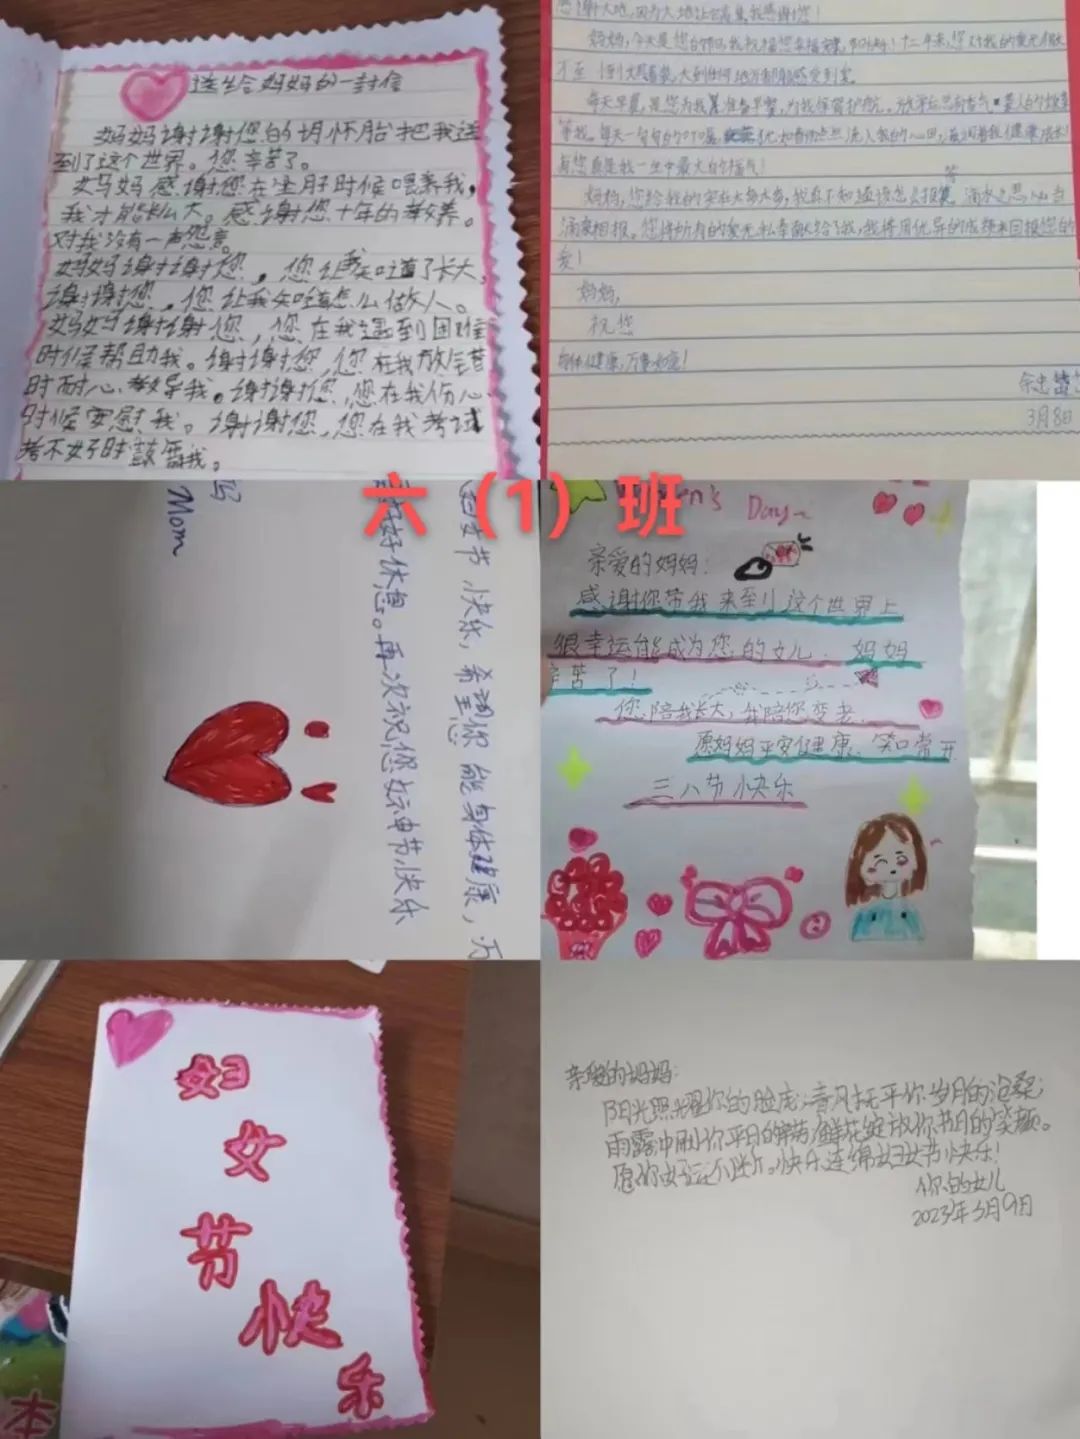 送给妈妈的一封信
妈妈谢谢您的十月怀胎把我送
到了这个世界。您辛苦了。
妈妈感谢您在坐月时候喂养我,
我才能长大。感谢您十年的教养。
对我没有一声怨言。
妈妈谢谢您,您让我知道了长大,
谢谢您,您让我知道怎么做人。
妈妈谢谢您,您在我遇到困难
时候帮助我。谢谢您,您在我放
时耐心教导我。谢谢您,您在我伤心
时候安慰我。谢谢您,您在我考试
考不好时鼓励我。
感谢大地,因为大地让
我感谢您!
妈妈,今天是您的节日,我祝福您
十二年来,您对我的爱无微不
至
每天早晨,是您为我准备早餐,为我保驾护航。
等我。每天一句句的叮咛
流入我的心田,
有您真是我一生中最大的福气!
妈妈,您给我的实在太多太多,我真不知道该怎么报答,滴水之恩,当
涌泉相报。您将所有的爱无私奉献给了我,我将用优异的成绩来回报您的
爱!
妈妈,
祝您
身体健康,万事如意!
3月8日
六(1)班
Mom
妇女节快乐,希望你能身体健康,万
好好休息。再一次祝您女神节快乐
Women's
Day~
亲爱的妈妈:
感谢你带我来到这个世界上
很幸运能成为您的女儿.妈妈
辛苦了!
您陪我长大,我陪您变老.
愿妈妈平安健康、笑口常开
三八节快乐
妇
女
节
快
乐
本
亲爱的妈妈:
阳光照耀你的脸庞;春风抚平你岁月的沧桑;
雨露冲刷你平日的 鲜花绽放你节日的笑颜。
愿你好运不断,快乐连绵妇女节快乐!
你的女儿
2023年3月9日